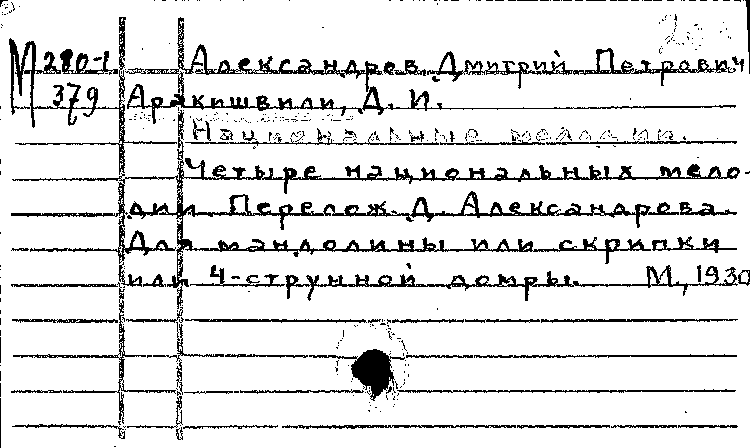 М 280-1 Александров, Дмитрий Петрович
379 Аракишвили, Д. И.
Национальные мелодии.
Четыре национальных мело-
дии. Перелож. Д. Александрова.
Для мандолины или скрипки
или 4-струнной домры. М., 1930